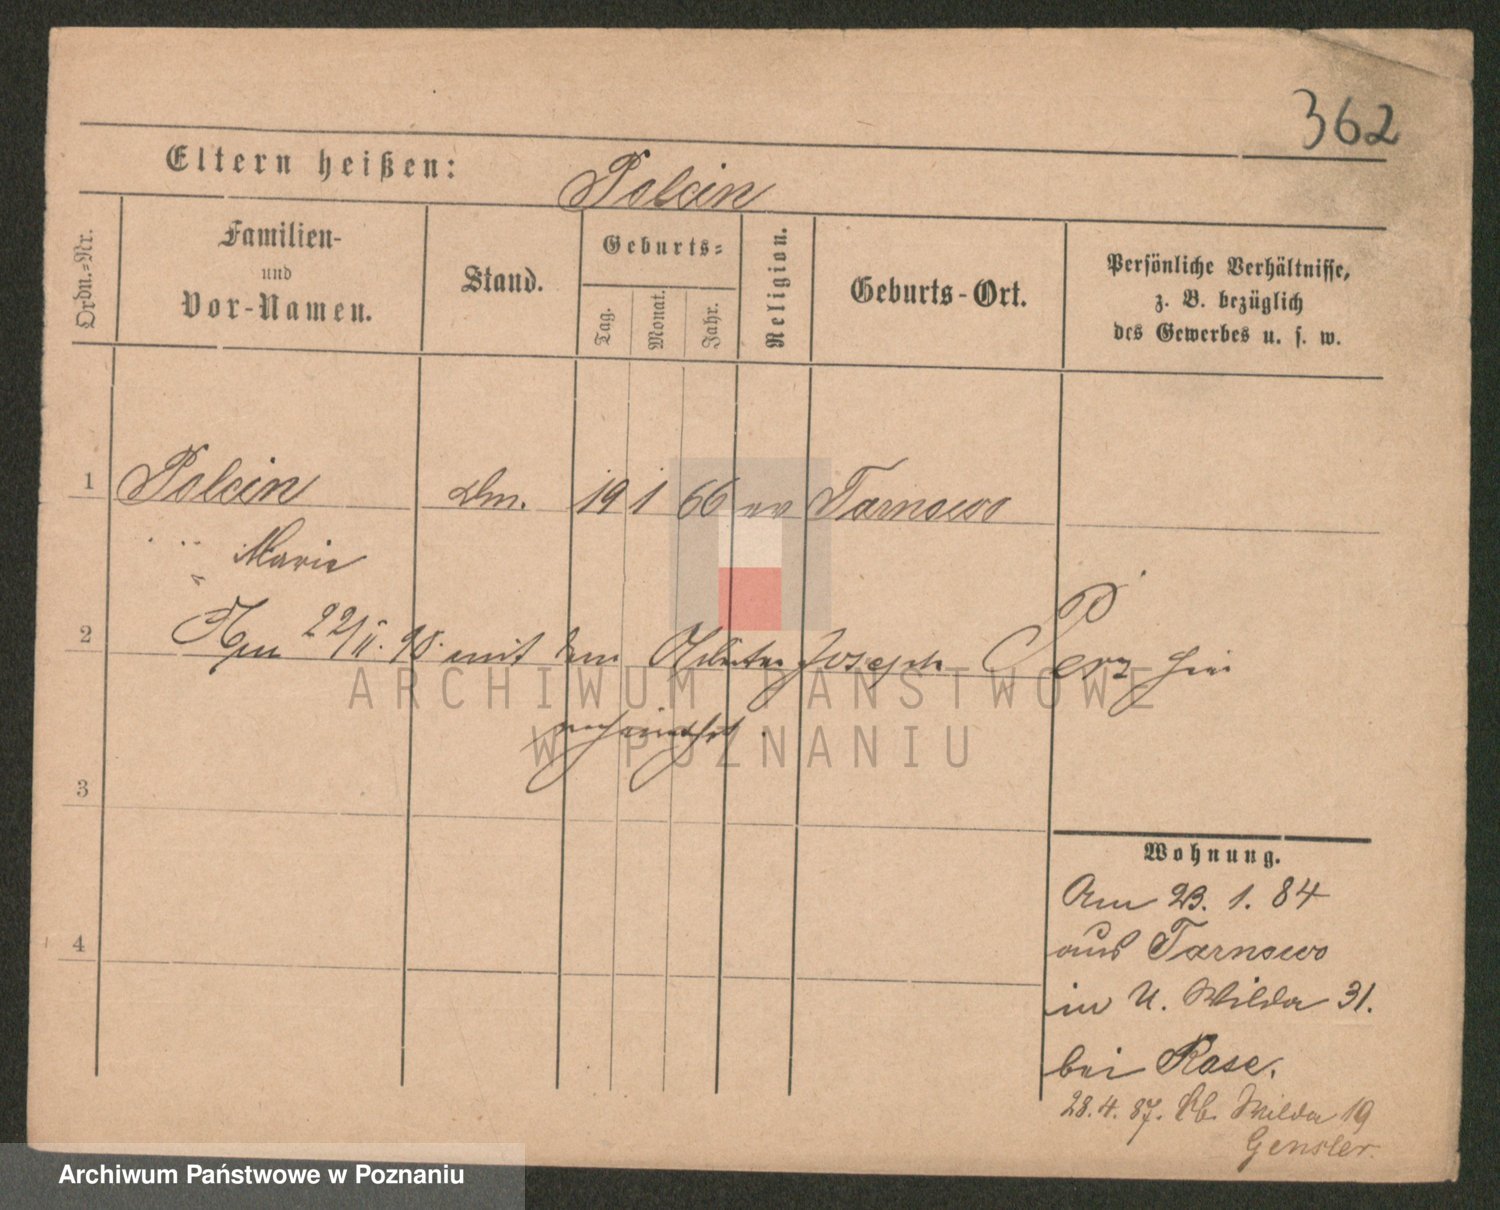 362
Eltern heißen: Polcin
Ordn.-Nr.
Familien-
und
Vor-Namen.
Stand.
Geburts-
Tag.
Monat.
Jahr.
Religion.
Geburts-Ort.
Persönliche Verhältnisse,
z. B. bezüglich
des Gewerbes u. s. w.
1 Polcin Dm. 19 1 66 ev Tarnowo
Marie
2 Am 22/II. 98. mit dem Arbeiter Joseph Perz hier
3
4
Wohnung.
Am 23. 1. 84
aus Tarnowo
in U. Wilda 31.
bei Rase.
28. 4. 87. Ob. Wilda 19
Gensler.
ARCHIWUM PAŃSTWOWE
W POZNANIU
Archiwum Państwowe w Poznaniu